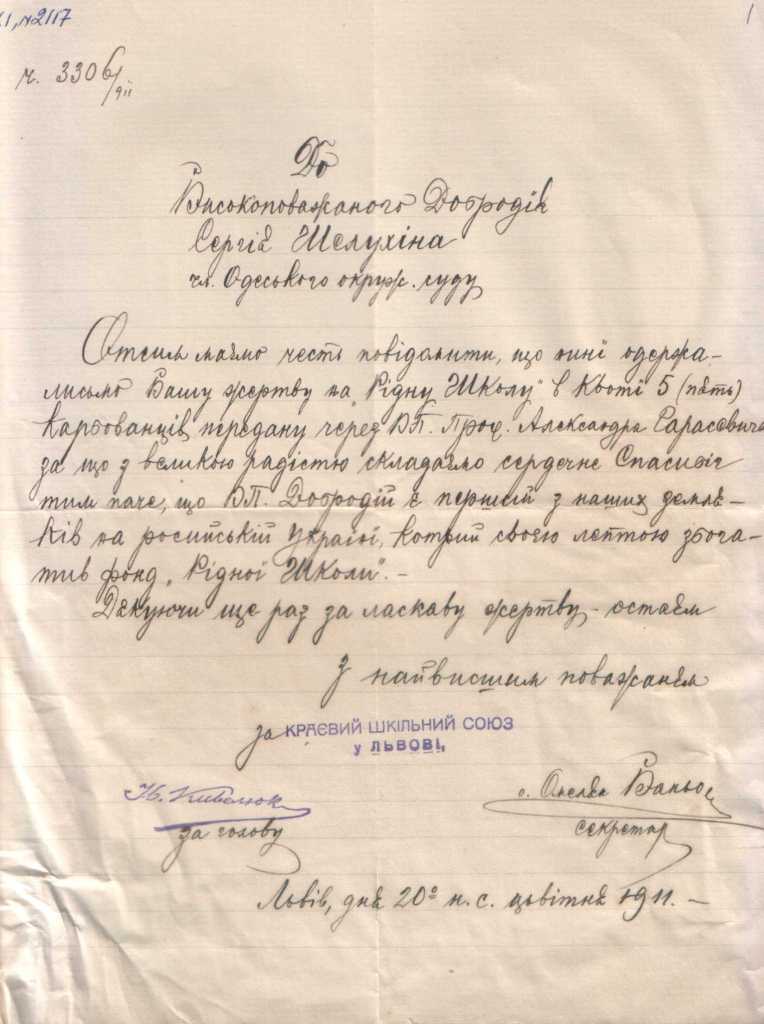 №2117
1
ч. 3306/911
До
Високоповажаного Добродія
Сергія Шелухіна
чл. Одеського окруж. суду
Отсим маємо честь повідомити, що нині одержа-
лисьмо Вашу жертву на „Рідну Школу" в квоті 5 (пять)
карбованців, передану через ВП. Проф. Александра
за що з великою радістю складаємо сердечне Спасибіг
тим паче, що ВП. Добродій є першим з наших земля-
ків на росийській Україні, котрий своєю лептою збога-
тив фонд „Рідної Школи". –
Дякуючи ще раз за ласкаву жертву – остаєм
З найвисшим поважанєм
за КРАЄВИЙ ШКІЛЬНИЙ СОЮЗ
у ЛЬВОВІ,
Ив. Кивелюк
о.
за голову
секретар
Львів, дня 20º н. с. цьвітня 1911. –